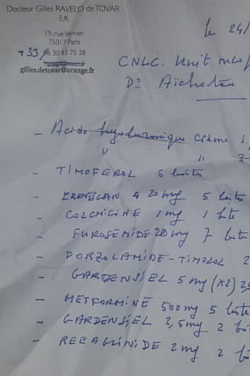 Docteur Gilles RAVELO de TOVAR
E.R.
19, rue Vernier
75017 Paris
+33/06 30 83 75 28
gilles.detovar@orange.fr
le 24/
CNLC. Unit
Dr Aichatou
- Acide hyaluronique crème 1
" "
- TIMOFEROL 6 bites
- 20mg 5 bites
- COLCHICINE 1mg 1 bite
- FUROSEMIDE 20mg 7 bites
- DORZOLAMIDE-TIMOLOL 2
- GARDENSIEL 5mg (x2)
- METFORMINE 500mg 5 bites
- GARDENSIEL 2,5mg 2
- REPAGLINIDE 2mg 2